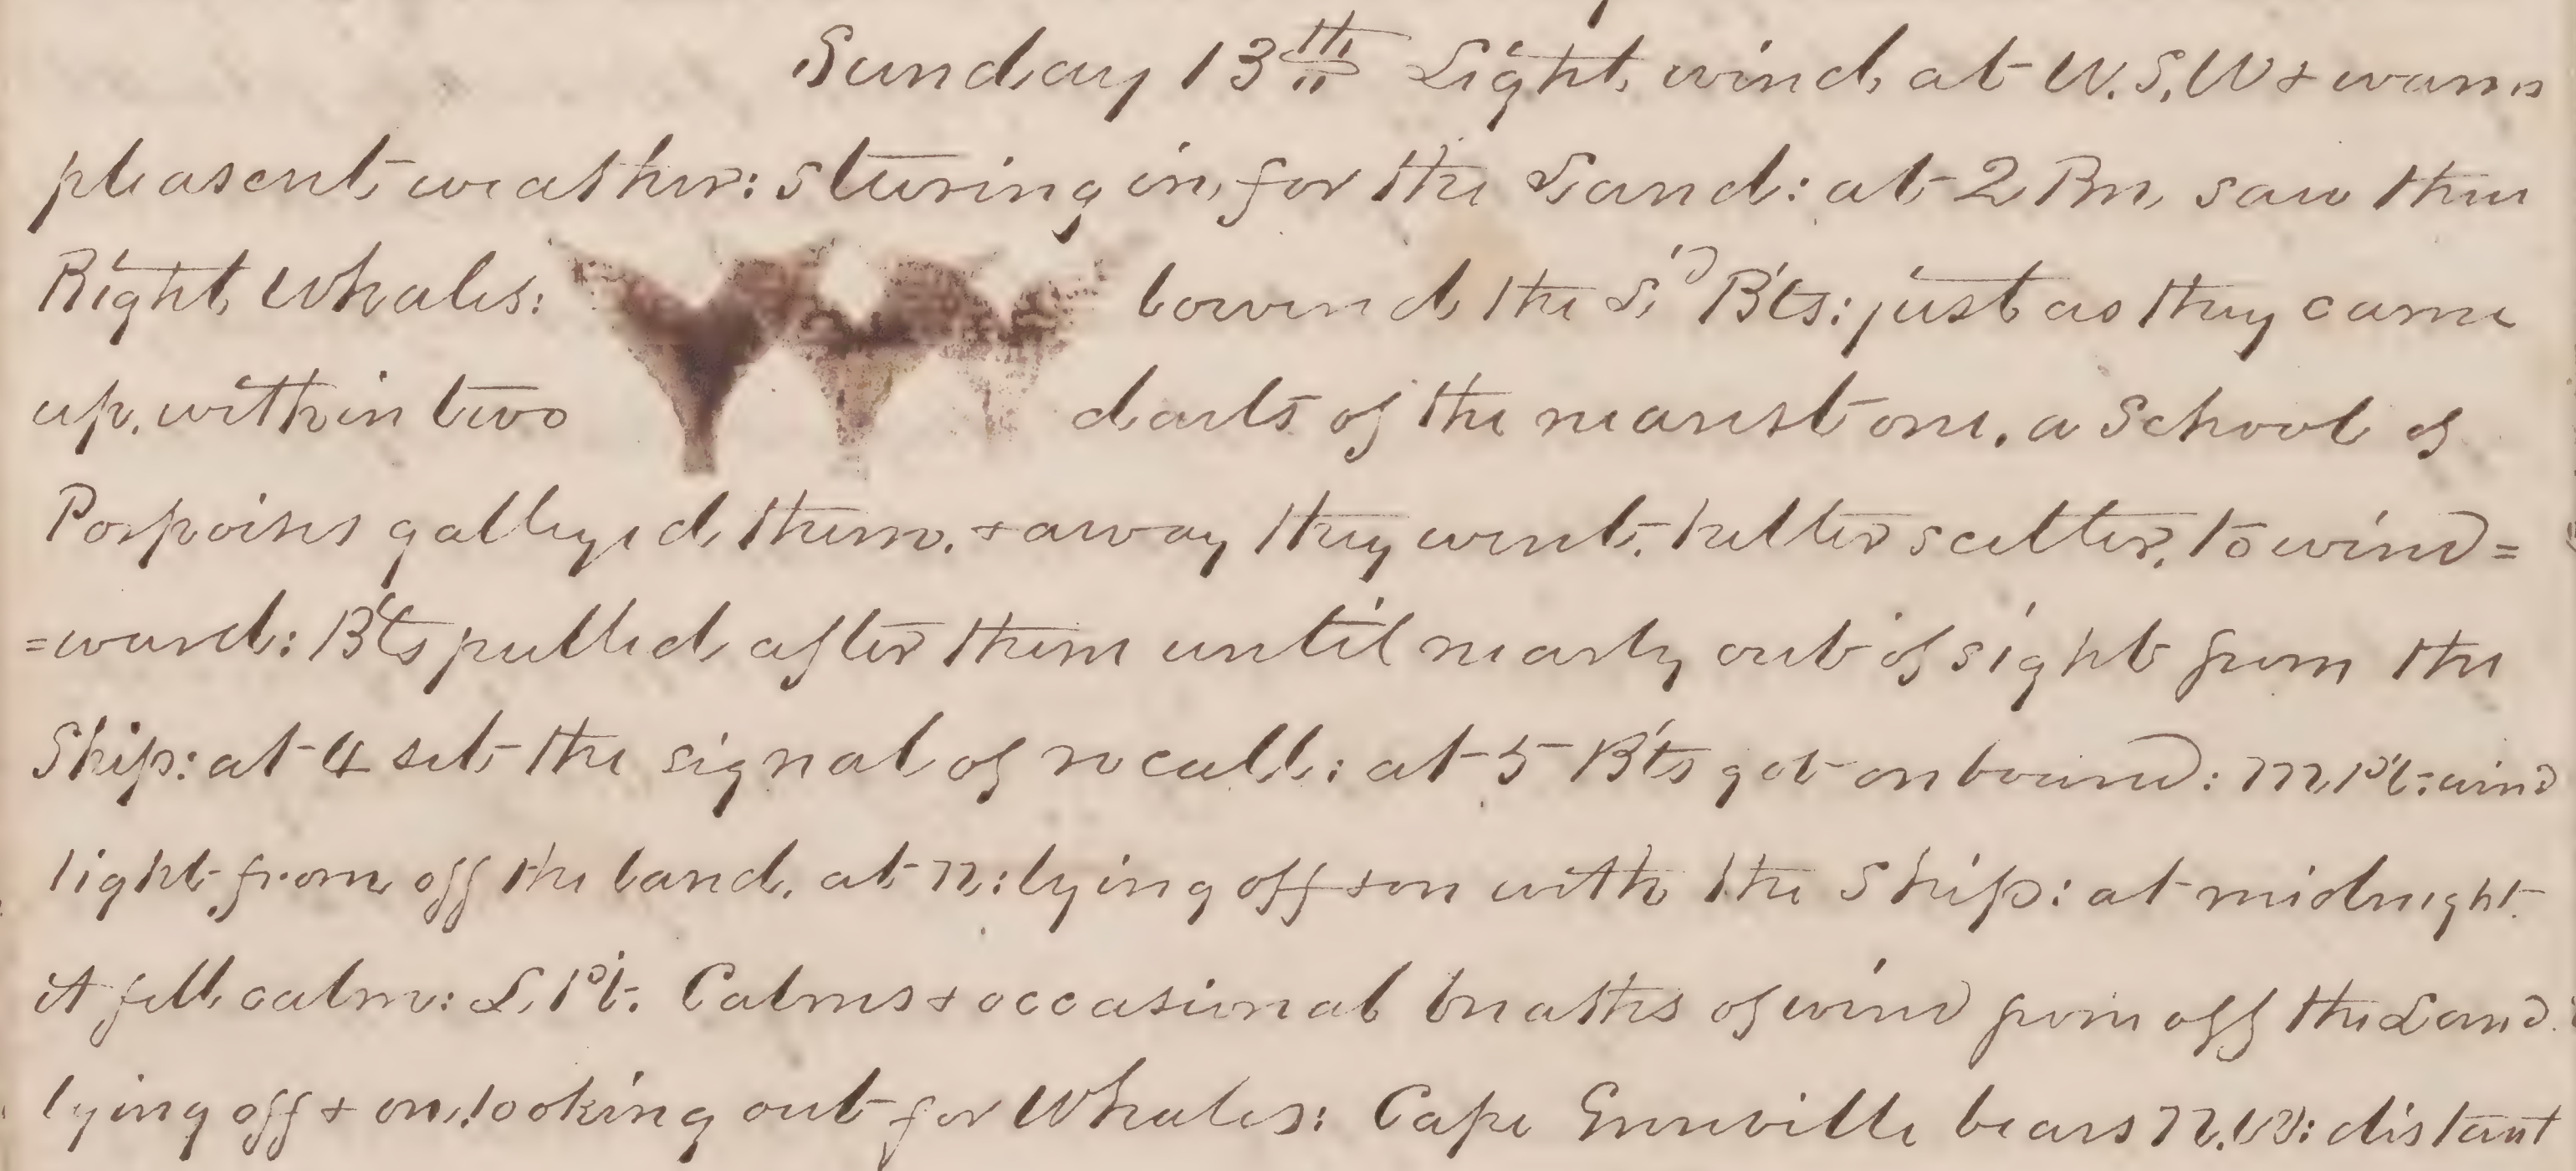 Sunday 13th Light wind at W.S.W & warm
pleasent weather: steering in for the Land: at 2 Pm saw three
Right Whales: lowered the L'd B'ts: just as they came
up, within two darts of the nearest one, a School of
Porpoises gallyed them, & away they went, helter scelter, to wind=
=ward: B'ts pulled after them until nearly out of sight from the
Ship: at 4 set the signal of recall: at 5 B'ts got on board: M P't: wind
light from off the land, at N: lying off & on with the Ship: at midnight
it fell calm: L, P't. Calms & occasional breaths of wind from off the Land
lying off & on, looking out for Whales: Cape Greenville bears N.W: distant